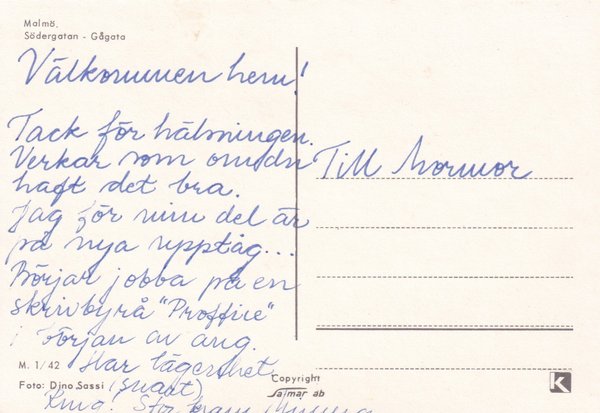 Malmö.
Södergatan - Gågata
Välkommen hem!
Tack för hälsningen.
Verkar som om du
haft det bra.
Jag för min del är
på nya upptåg...
Börjar jobba på en
skrivbyrå "Proffice"
i början av aug.
Har lägenhet
(snart)
Till Mormor
M. 1/42
Foto: Dino Sassi
Copyright
Sajmar ab
K